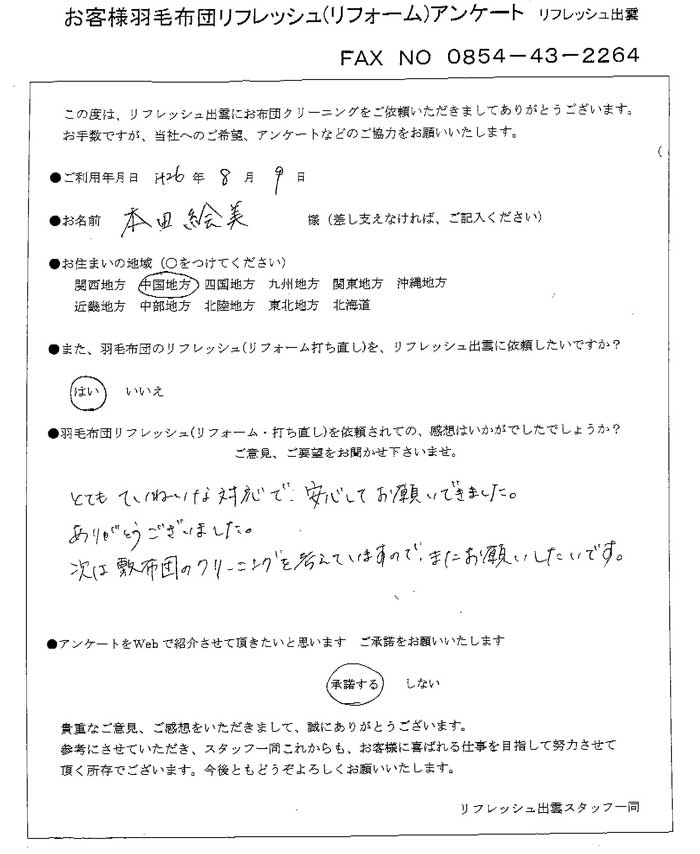 お客様羽毛布団リフレッシュ(リフォーム)アンケート リフレッシュ出雲
FAX NO 0854-43-2264
この度は、リフレッシュ出雲にお布団クリーニングをご依頼いただきましてありがとうございます。
お手数ですが、当社へのご希望、アンケートなどのご協力をお願いいたします。
●ご利用年月日 H26 年 8 月 9 日
●お名前 本田絵美 様(差し支えなければ、ご記入ください)
●お住まいの地域(○をつけてください)
関西地方 中国地方 四国地方 九州地方 関東地方 沖縄地方
近畿地方 中部地方 北陸地方 東北地方 北海道
●また、羽毛布団のリフレッシュ(リフォーム打ち直し)を、リフレッシュ出雲に依頼したいですか?
はい いいえ
●羽毛布団リフレッシュ(リフォーム・打ち直し)を依頼されての、感想はいかがでしたでしょうか?
ご意見、ご要望をお聞かせ下さいませ。
とても ていねいな対応で、安心してお願いできました。
ありがとうございました。
次は敷布団のクリーニングを考えていますので、またお願いしたいです。
●アンケートをWebで紹介させて頂きたいと思います ご承諾をお願いいたします
承諾する しない
貴重なご意見、ご感想をいただきまして、誠にありがとうございます。
参考にさせていただき、スタッフ一同これからも、お客様に喜ばれる仕事を目指して努力させて
頂く所存でございます。今後ともどうぞよろしくお願いいたします。
リフレッシュ出雲スタッフ一同